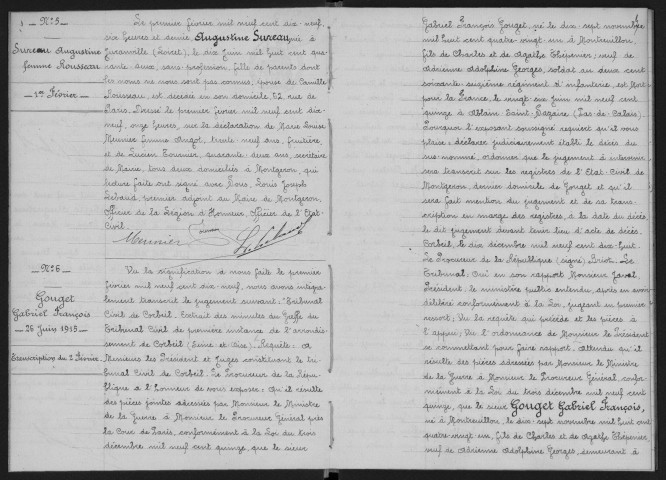 N°5
Sureau Augustine
femme Rousseau
1er Février
Le premier février mil neuf cent dix-neuf,
six heures et demie, Augustine Sureau, née à
Juranville (Loiret), le dix Juin mil huit cent qua-
rante-deux, sans profession, fille de parents dont
les noms ne nous sont pas connus, épouse de Camille
Rousseau, est décédée en son domicile, 62 rue de
Paris. Dressé le premier février mil neuf cent dix-
neuf, onze heures, sur la déclaration de Marie Louise
Meunier femme Angot, trente neuf ans, fruitière
et de Lucien Fournier, quarante-deux ans, secrétaire
de Mairie, tous deux domiciliés à Montgeron, qui
lecture faite ont signé avec Nous, Louis Joseph
premier adjoint au Maire de Montgeron,
Officier de la Légion d'Honneur, Officier de l'Etat-
Civil.
Meunier
N°6
Gouget
Gabriel François
26 Juin 1915
Transcription du 2 Février
Vu la signification à nous faite le premier
février mil neuf cent dix-neuf, nous avons inté-
lement transcrit le jugement suivant: Tribunal
Civil de Corbeil. Extrait des minutes du Greffe du
Tribunal Civil de première instance de l'arrondis-
sement de Corbeil (Seine et Oise). Requête: A
Messieurs les Président et Juges constituant le tri-
bunal Civil de Corbeil. Le Procureur de la Répu-
blique a l'honneur de vous exposer: Qu'il résulte
des pièces jointes adressées par Monsieur le Ministre
de la Guerre à Monsieur le Procureur Général près
la Cour de Paris, conformément à la loi du trois
décembre mil neuf cent quinze, que le sieur
Gabriel François Gouget, né le dix-sept novembre
mil huit cent quatre-vingt-un, à Montreuillon,
fils de Charles et de Agathe Thépenier; veuf de
Adrienne Adolphine Georges, soldat au deux cent
soixante-seizième régiment d'infanterie, est Mort
pour la France, le vingt-six Juin mil neuf cent
quinze à Ablain Saint-Nazaire (Pas-de-Calais).
Pourquoi l'exposant soussigné requiert qu'il vous
plaise: déclarer judiciairement établi le décès du
sus-nommé, ordonner que le jugement à intervenir
sera transcrit sur les registres de l'Etat-Civil de
Montgeron dernier domicile de Gouget et qu'il
sera fait mention du jugement et de sa trans-
cription en marge des registres, à la date du décès,
le dit jugement devant tenir lieu d'acte de décès.
Corbeil, le dix décembre mil neuf cent dix-huit.
Le Procureur de la République (signé) Le
Tribunal, Ouï en son rapport Monsieur
Président, le ministère public entendu, après en avoir
délibéré conformément à la Loi, jugeant en premier
ressort; Vu la requête qui précède et les pièces à
l'appui; Vu l'ordonnance de Monsieur le Président
se commettant pour faire rapport; Attendu qu'il
résulte des pièces adressées par Monsieur le Ministre
de la Guerre à Monsieur le Procureur Général confor-
mément à la Loi du trois décembre mil neuf cent
quinze, que le sieur Gouget Gabriel François,
né à Montreuillon, le dix-sept novembre mil huit cent
quatre-vingt-un, fils de Charles et de Agathe Thépenier,
veuf de Adrienne Adolphine Georges, demeurant à